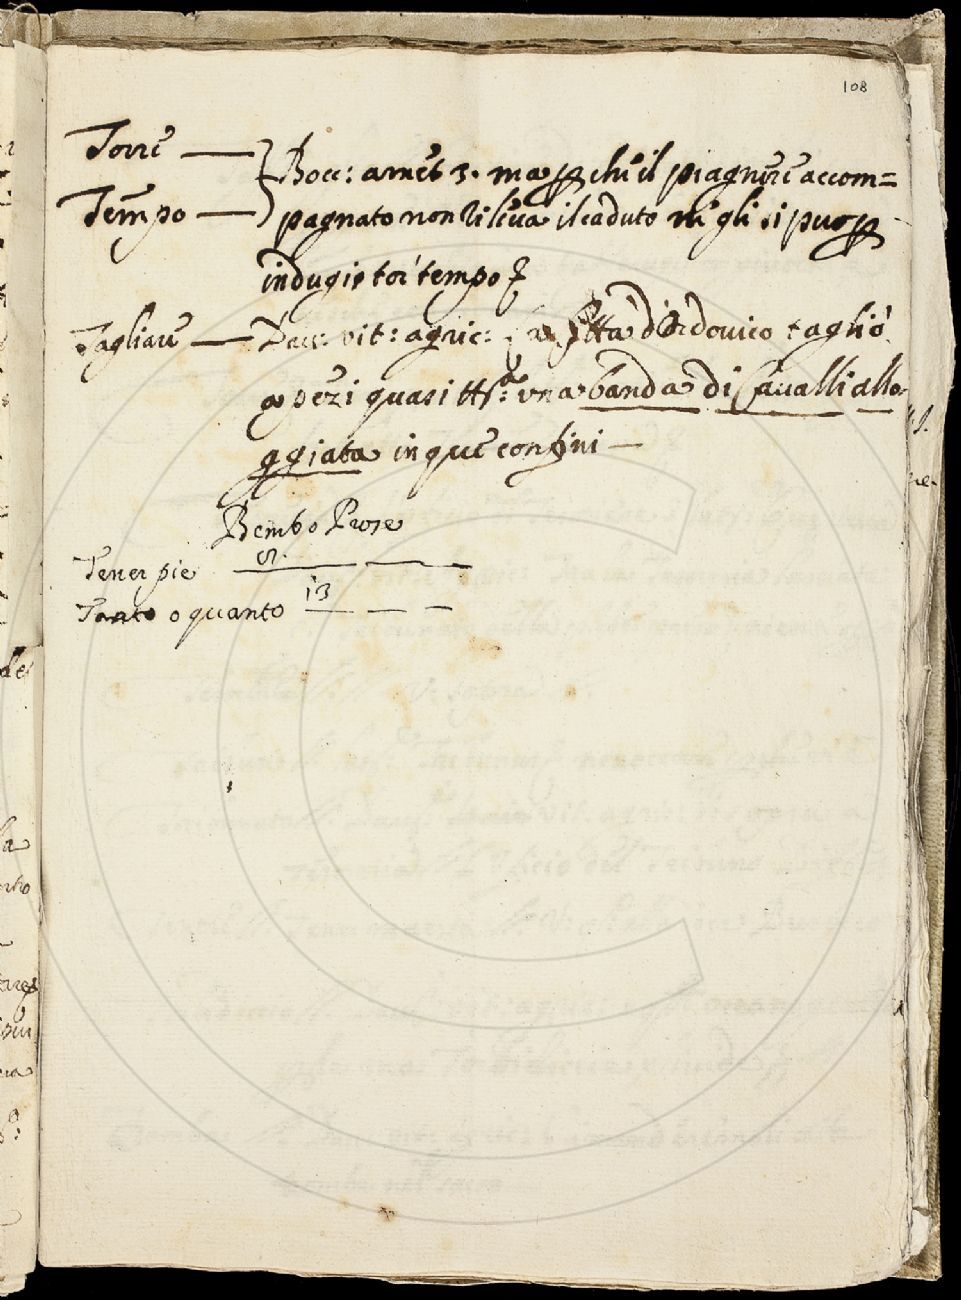 108
Torre — } Bocc: amet 3. ma p che il piagnere accom=
Tempo — } pagnato non rileva il caduto ne gli si puo p
indugio tor' tempo
Tagliare — Dav: vit: agric: tagliò
a pezi quasi tta una banda di Cavalli allo-
ggiata in que confini —
Bembo Prose
Tener pie 52.
Tanto o quanto 13